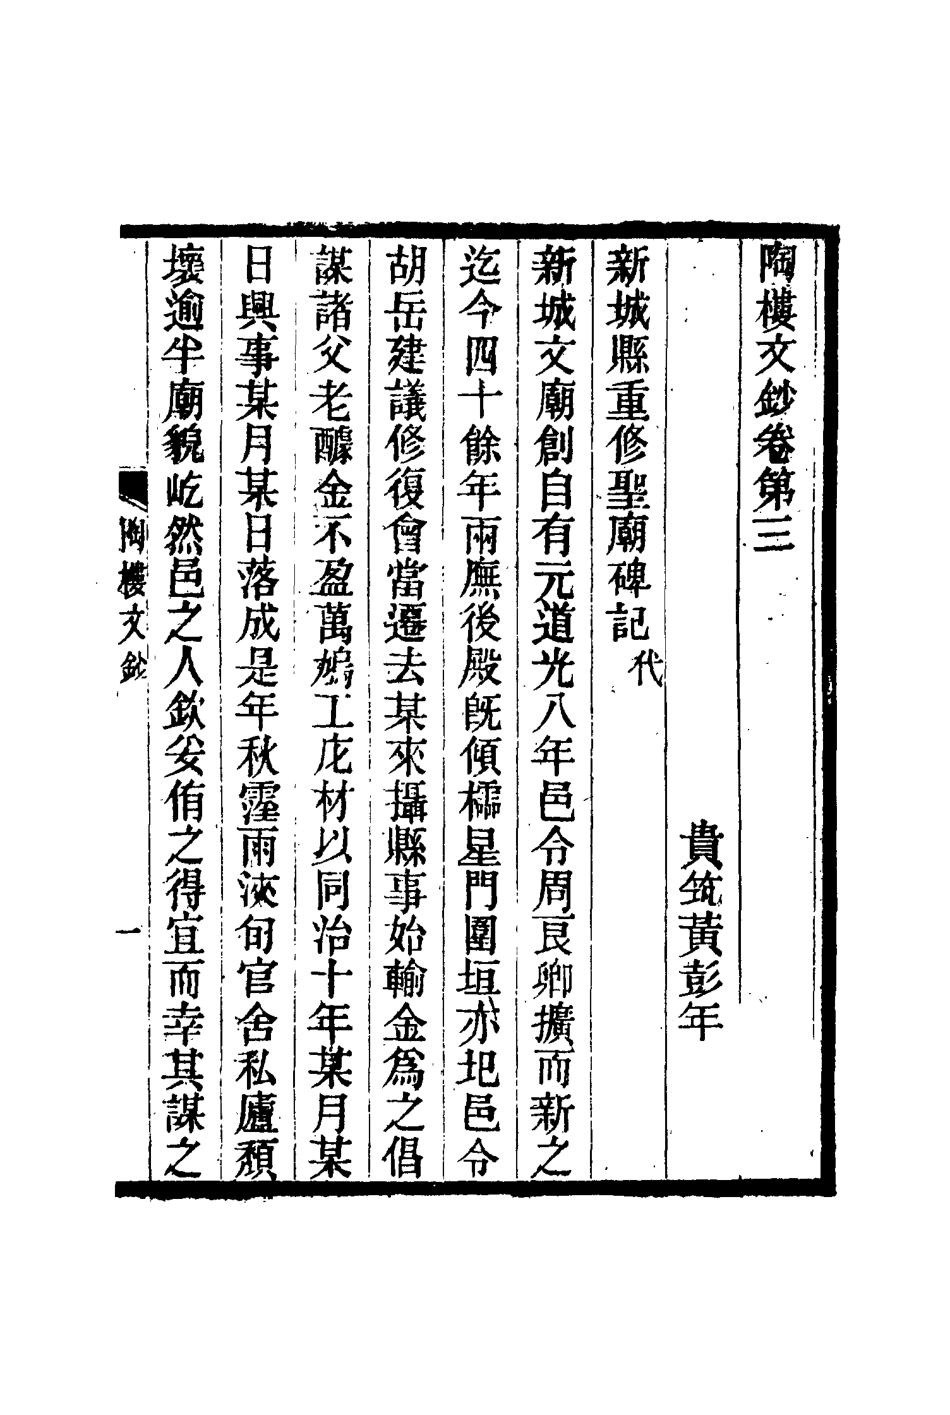 陶樓文鈔卷第三
貴筑黃彭年
新城縣重修聖廟碑記代
新城文廟創自有元道光八年邑令周艮卿擴而新之
迄今四十餘年兩廡後殿旣傾櫺星門圍垣亦圯邑令
胡岳建議修復會當遷去某來攝縣事始輸金爲之倡
謀諸父老醵金不盈萬鳩工庀材以同治十年某月某
日興事某月某日落成是年秋霪雨浹旬官舍私廬頹
壞逾半廟貌屹然邑之人欽妥侑之得宜而幸其謀之
陶樓文鈔
一